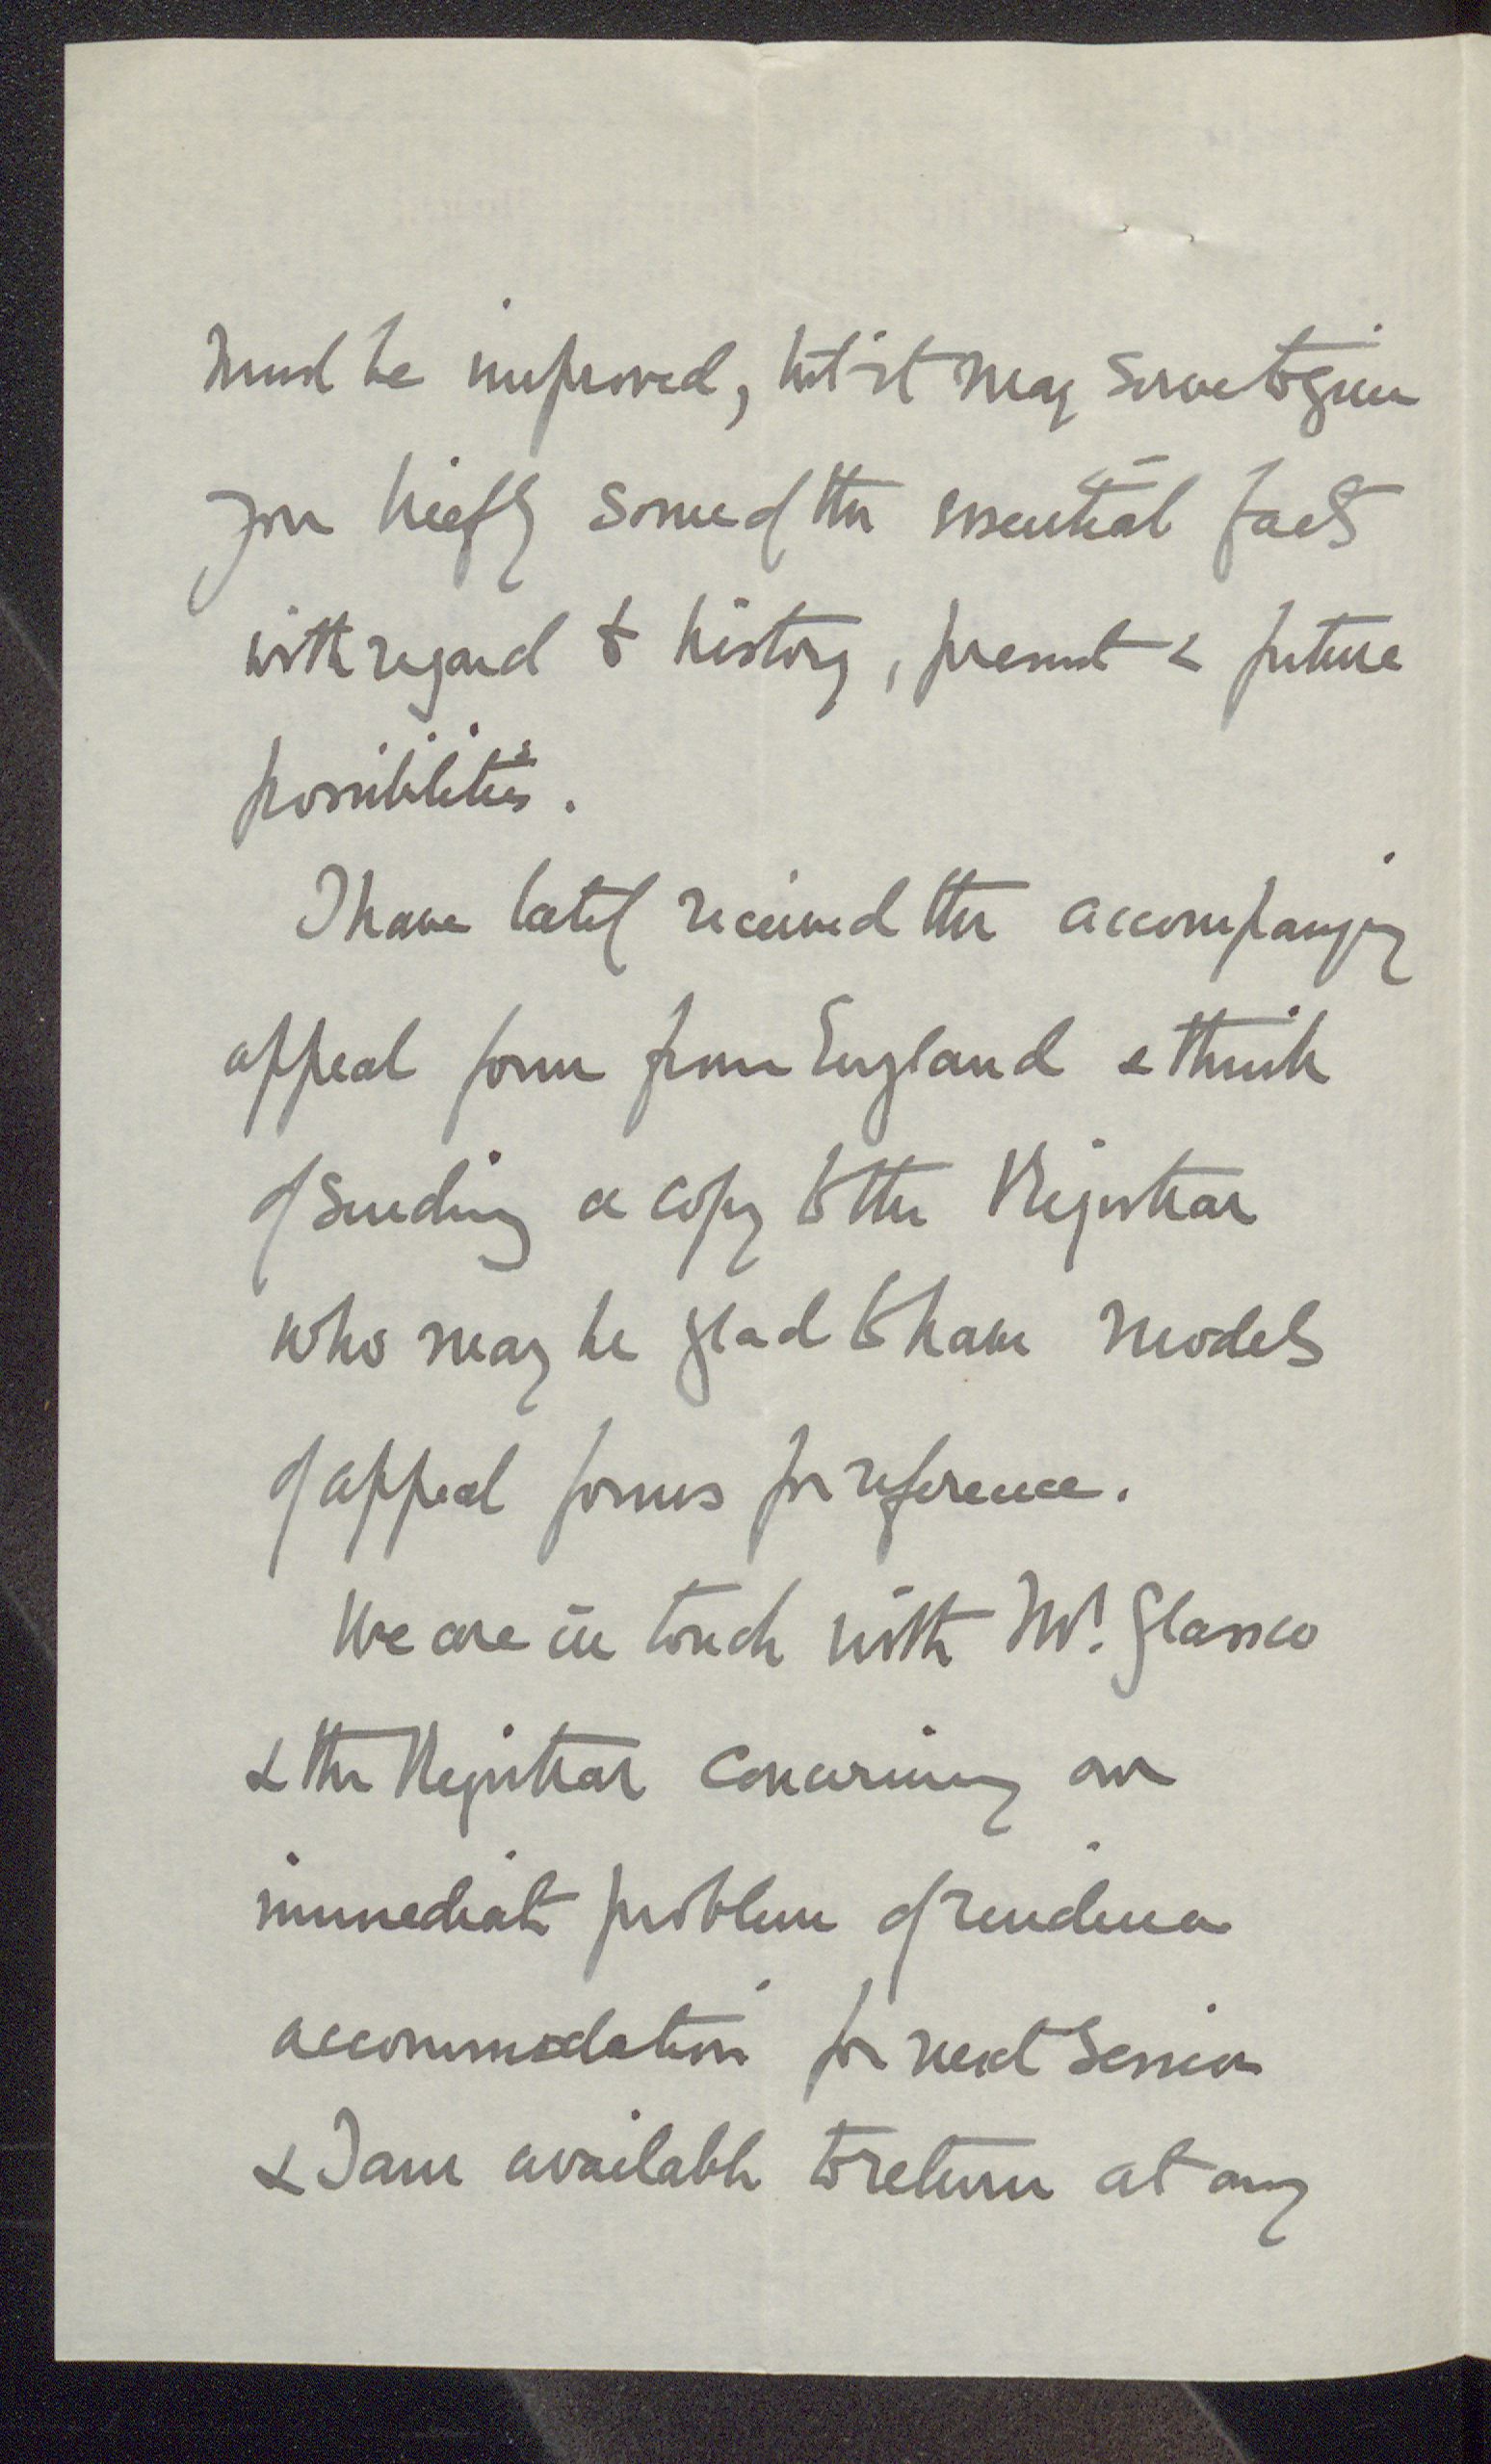 must be improved, but it may serve to give
you briefly some of the essential facts
with regard to history, present & future
possibilities.
I have lately received the accompanying
appeal form from England & think
of sending a copy to the Registrar
who may be glad to have models
of appeal forms for reference.
We are in touch with Mr. Glassco
& the Registrar concerning our
immediate problem of residence
accommodation for next session
& I am available to return at any